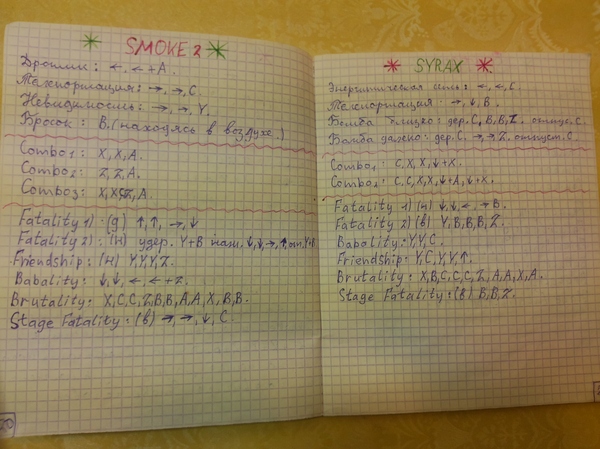 * SMOKE 2 *
Дротик: ←, ← + A.
Телепортация: →, →, C.
Невидимость: →, →, Y.
Бросок: B. (находясь в воздухе.)
Combo1: X, X, A.
Combo2: Z, Z, A.
Combo3: X, X, Z, A.
Fatality 1) : (д) ↑, ↑, →, ↓
Fatality 2) : (н) удер. Y+B наж. ↓, ↓, →, ↑, от. Y+B
Friendship: (н) Y, Y, Y, Z.
Babality: ↓, ↓, ←, ← + Z.
Brutality: X, C, C, Z, B, B, A, A, X, B, B.
Stage Fatality: (в) →, →, ↓, C.
20
* SYRAX *
Энергитическая сеть: ←, ←, C.
Телепортация: →, ↓, B.
Бомба близко: дер. C, B, B, Z. отпус. C.
Бомба далеко: дер. C, →, →, Z. отпуст. C.
Combo1: C, X, X, ↓+X.
Combo2: C, C, X, X, ↓+A, ↓+X.
Fatality 1) (н) ↓, ↓, ←, → B.
Fatality 2) (в) Y, B, B, B, Z.
Babality: Y, Y, C.
Friendship: Y, C, Y, Y, ↑.
Brutality: X, B, C, C, C, Z, A, A, X, A.
Stage Fatality: (в) B, B, Z.